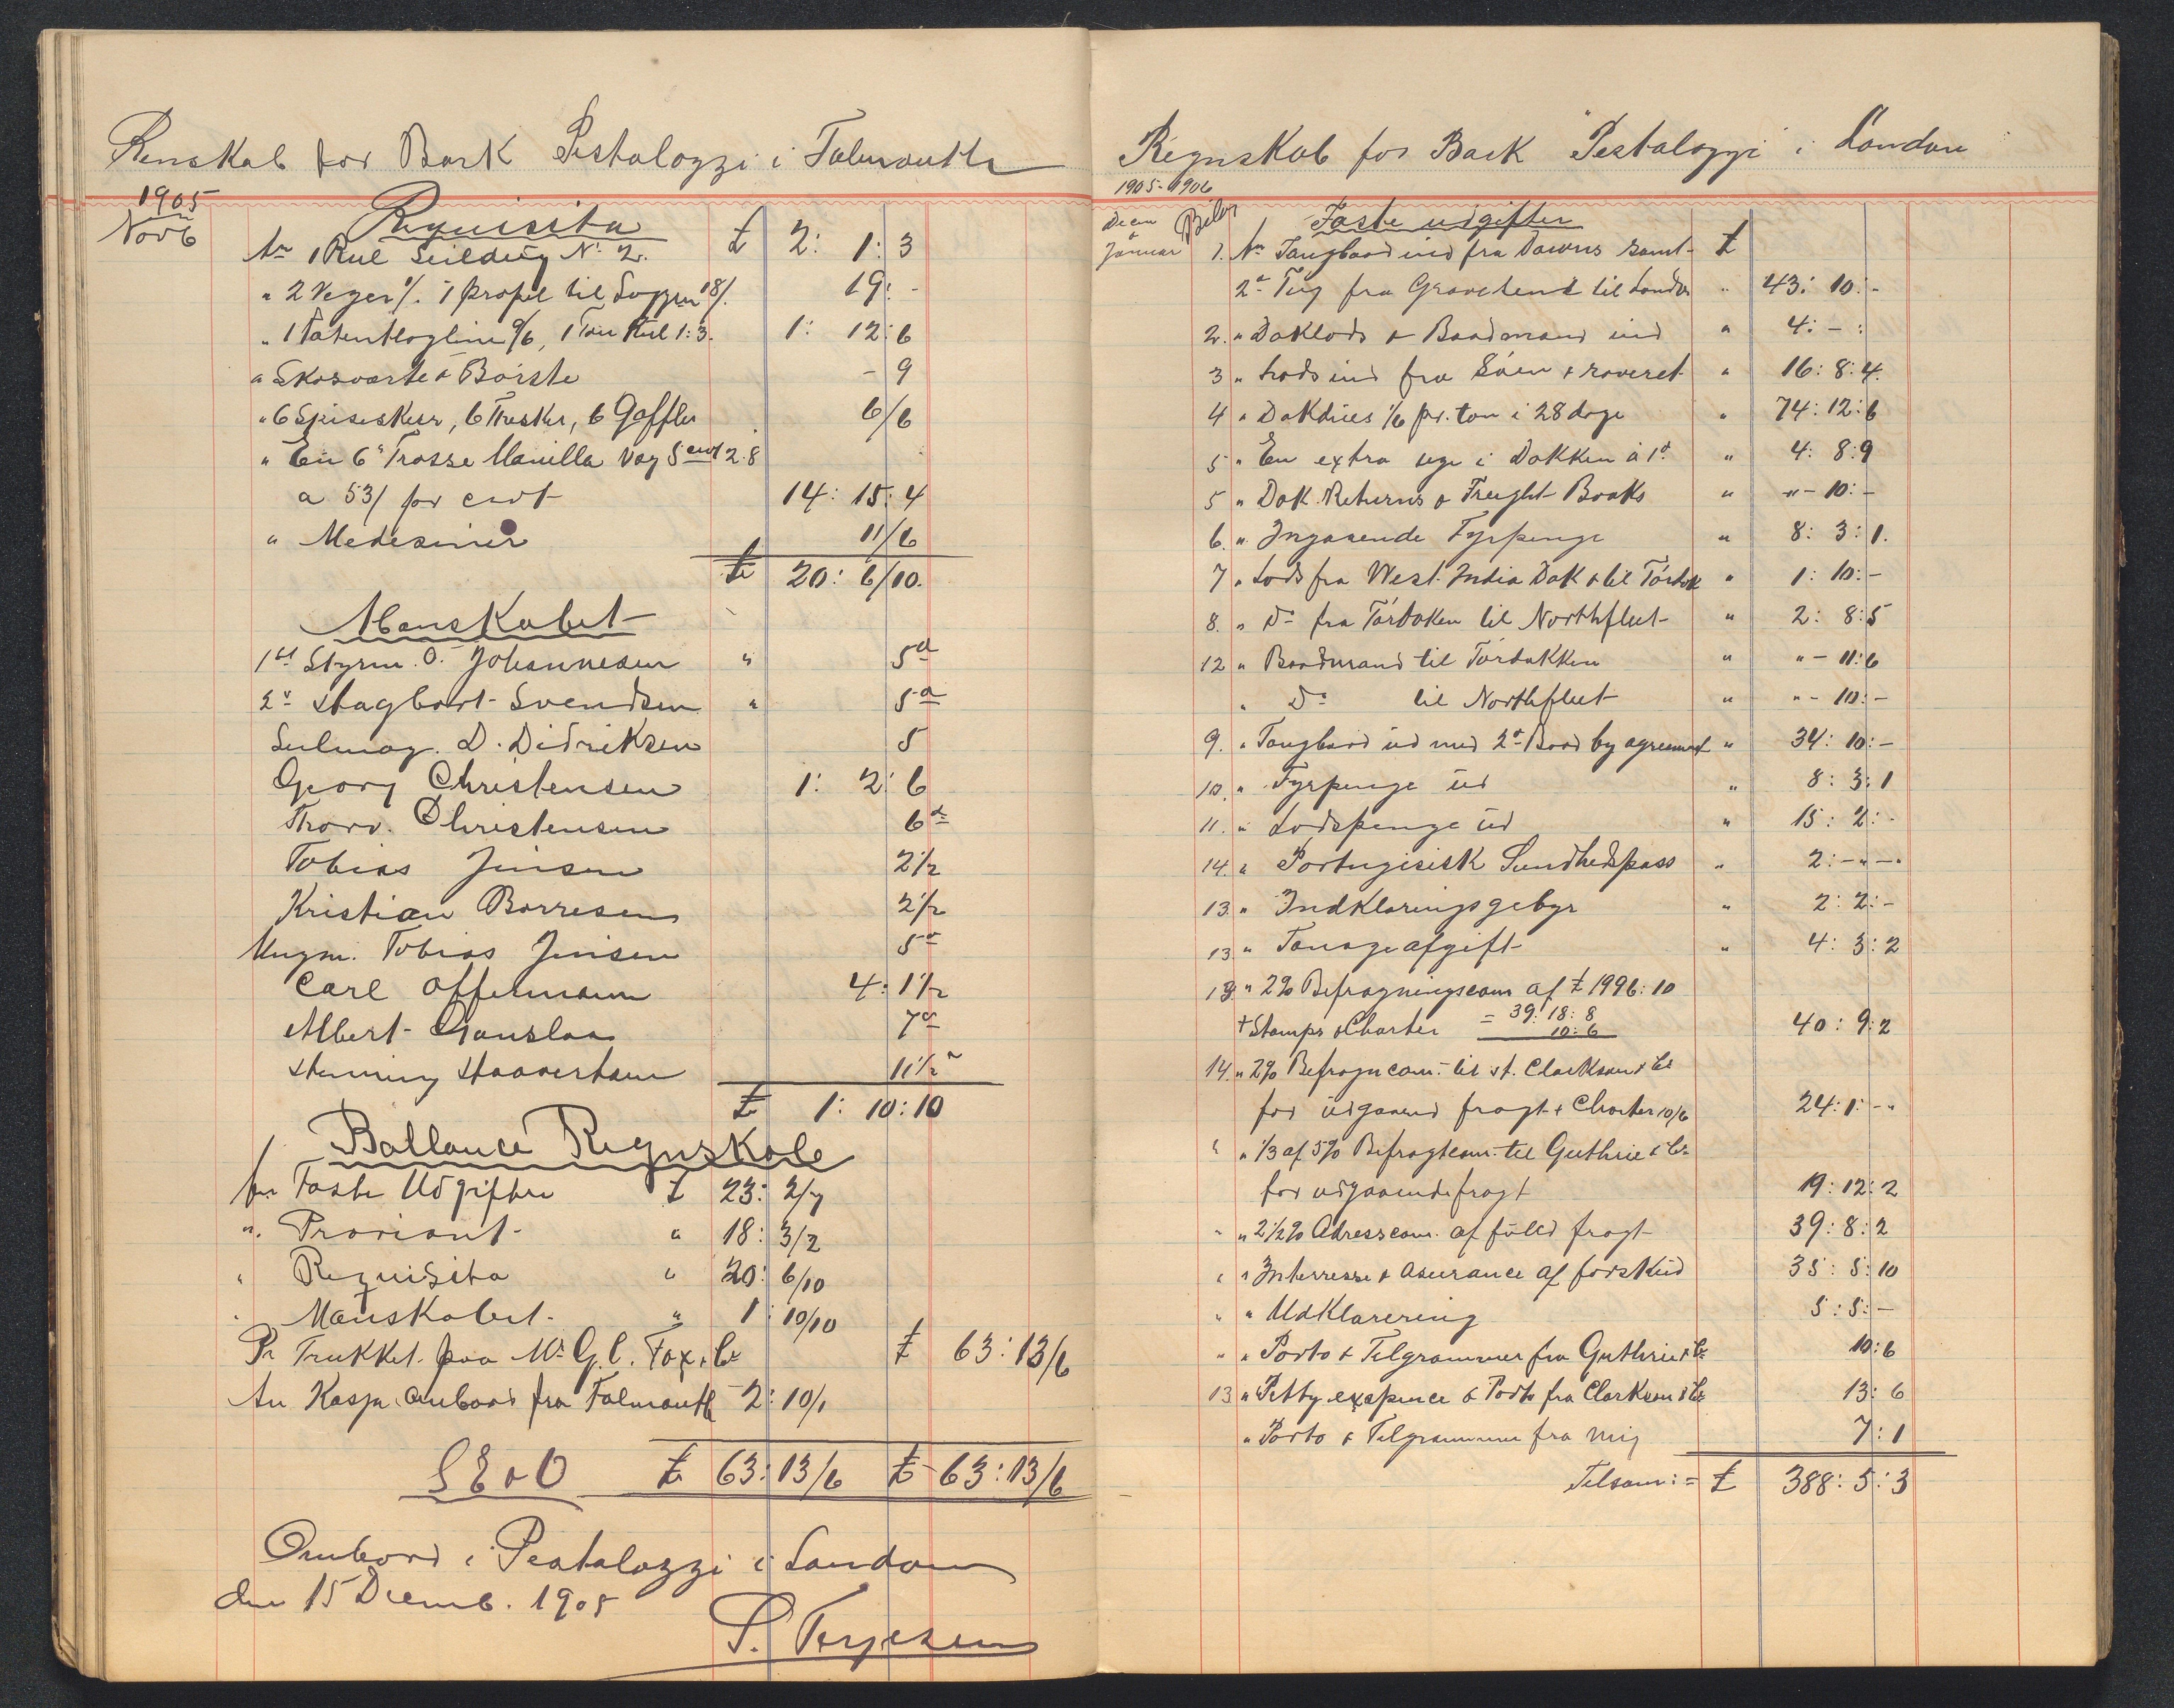 Renskab for Bark Pestalozzi i Falmouth
1905
Novb
Requisita
An 1 Rul Seildug No 2. £ 2: 1: 3
" 2 Veger 1/. 1 propel til Loggen 18/. 19: -
" 1 Patentlogline 9/6, 1 Ton Kul 1:3. 1: 12: 6
" Skosvärte & Börste - 9
" 6 Spiseskeer, 6 Theskeer, 6 Gaffler 6/6
" En 6" Trosse Manilla vog 5 cwt 2.8
a 53/ pr cwt 14: 15: 4
" Medesiner 11/6
£ 20: 6/10.
Manskabet
1st Styrm. O. Johannesen " 5d
2d Hagbart Svendsen " 5d
Seilmag. D. Didriksen 5
Georg Christensen 1: 2: 6
Thorv. Christensen 6d
Tobias Jensen 2 1/2
Kristian Borresen 2 1/2
Ungm. Tobias Jensen 5d
Carl Offermann 4: 1 1/2
Albert Gauslaa 7d
Henning 11 1/2 d
£ 1: 10: 10
Ballance Regnskab
An Faste Udgifter £ 23: 2/7
" Proviant " 18: 3/2
" Requisita " 20: 6/10
" Manskabet " 1: 10/10
Pr Trukket paa Mr G. C. Fox & Co £ 63: 13/6
An Kassa ombord fra Falmouth 2: 10/1
S E & O £ 63: 13/6 £ 63: 13/6
Ombord i Pestalozzi i London
den 15 Decemb. 1905
S. Terjesen
Regnskab for Bark "Pestalozzi" i London
1905-1906
Decm & Januar Bilag Faste udgifter
1. An Taugbaad ind fra Downs samt £
2d Tug fra Gravesend til London " 43: 10: -
2. " Doklods & Baadmand ind " 4: - :
3 " Lods ind fra Söen & roveret " 16: 8: 4.
4 " Dokdues 1/6 pr. ton i 28 dage " 74: 12: 6
5 " En extra uge i Dokken à 1d " 4: 8: 9
5 " Dok Returns & Freight Books " " - 10: -
6. " Ingaaende Fyrpenge " 8: 3: 1.
7 " Lods fra West India Dok & til Tördok " 1: 10: -
8. " Do fra Tördoken til Northfleet " 2: 8: 5
12 " Baadmand til Tördokken " " - 11: 6
" Do til Northfleet " " - 10: -
9. " Taugbaad ud med 2d Baad by agreement " 34: 10: -
10. " Fyrpenge ud " 8: 3: 1
11. " Lodspenge ud " 15: 2: -
14. " Portugisisk Sundhedspass " 2: - " - "
13. " Indklaringsgebyr " 2: 2: -
13 " Tonageafgift " 4: 3: 2
13 " 2% Befragningscom af £ 1996: 10
+ Stamps & Charter = 39: 18: 8
10: 6 40: 9: 2
14. " 2% Befragncom. til H. Clarkson & Co
for udgaaend fragt + Charter 10/6 24: 1: - "
" " 1/3 af 5% Befragtcom. til Guthrie & Co
for udgaaende fragt 19: 12: 2
" " 2 1/2% Adresscom. af fuld fragt 39: 8: 2
" " Interresse & Asurance af forskud 35: 5: 10
" " Udklarering 5: 5: -
" " Porto & Telgrammer fra Guthrie & Co 10: 6
13 " Petty exspence & Porto fra Clarkson & Co 13: 6
" Porto & Telgrammer fra mig 7: 1
Tilsam: = £ 388: 5: 3